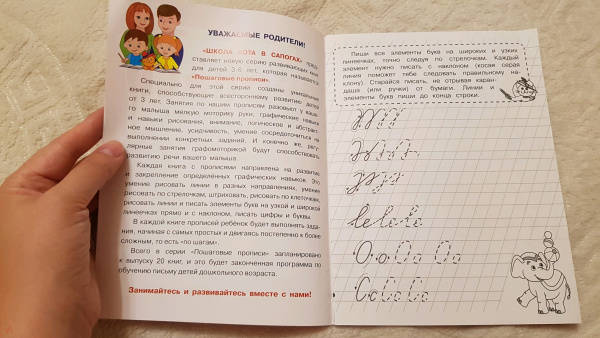 УВАЖАЕМЫЕ РОДИТЕЛИ!
«ШКОЛА КОТА В САПОГАХ» пред-
ставляет новую серию развивающих книг
для детей 3-6 лет, которая называется
«Пошаговые прописи».
Специально для этой серии созданы уникальные
книги, способствующие всестороннему развитию детей
от 3 лет. Занятия по нашим прописям разовьют у ваше-
го малыша мелкую моторику руки, графические навыки
и навыки рисования, внимание, логическое и абстракт-
ное мышление, усидчивость, умение сосредоточиться на
выполнении конкретных заданий. И конечно же, регу-
лярные занятия графомоторикой будут способствовать
развитию речи вашего малыша.
Каждая книга с прописями направлена на развитие
и закрепление определённых графических навыков. Это
умение рисовать линии в разных направлениях, умение
рисовать по стрелочкам, штриховать, рисовать по клеточкам,
рисовать линии и писать элементы букв на узкой и широкой
линеечках прямо и с наклоном, писать цифры и буквы.
В каждой книге прописей ребёнок будет выполнять зада-
ния, начиная с самых простых и двигаясь постепенно к более
сложным, то есть «по шагам».
Всего в серии «Пошаговые прописи» запланировано
к выпуску 20 книг, и это будет законченная программа по
обучению письму детей дошкольного возраста.
Занимайтесь и развивайтесь вместе с нами!
Пиши все элементы букв на широких и узких
линеечках, точно следуя по стрелочкам. Каждый
элемент нужно писать с наклоном (косая серая
линия поможет тебе следовать правильному на-
клону). Старайся писать, не отрывая каран-
даша (или ручки) от бумаги. Линии и
элементы букв пиши до конца строки.